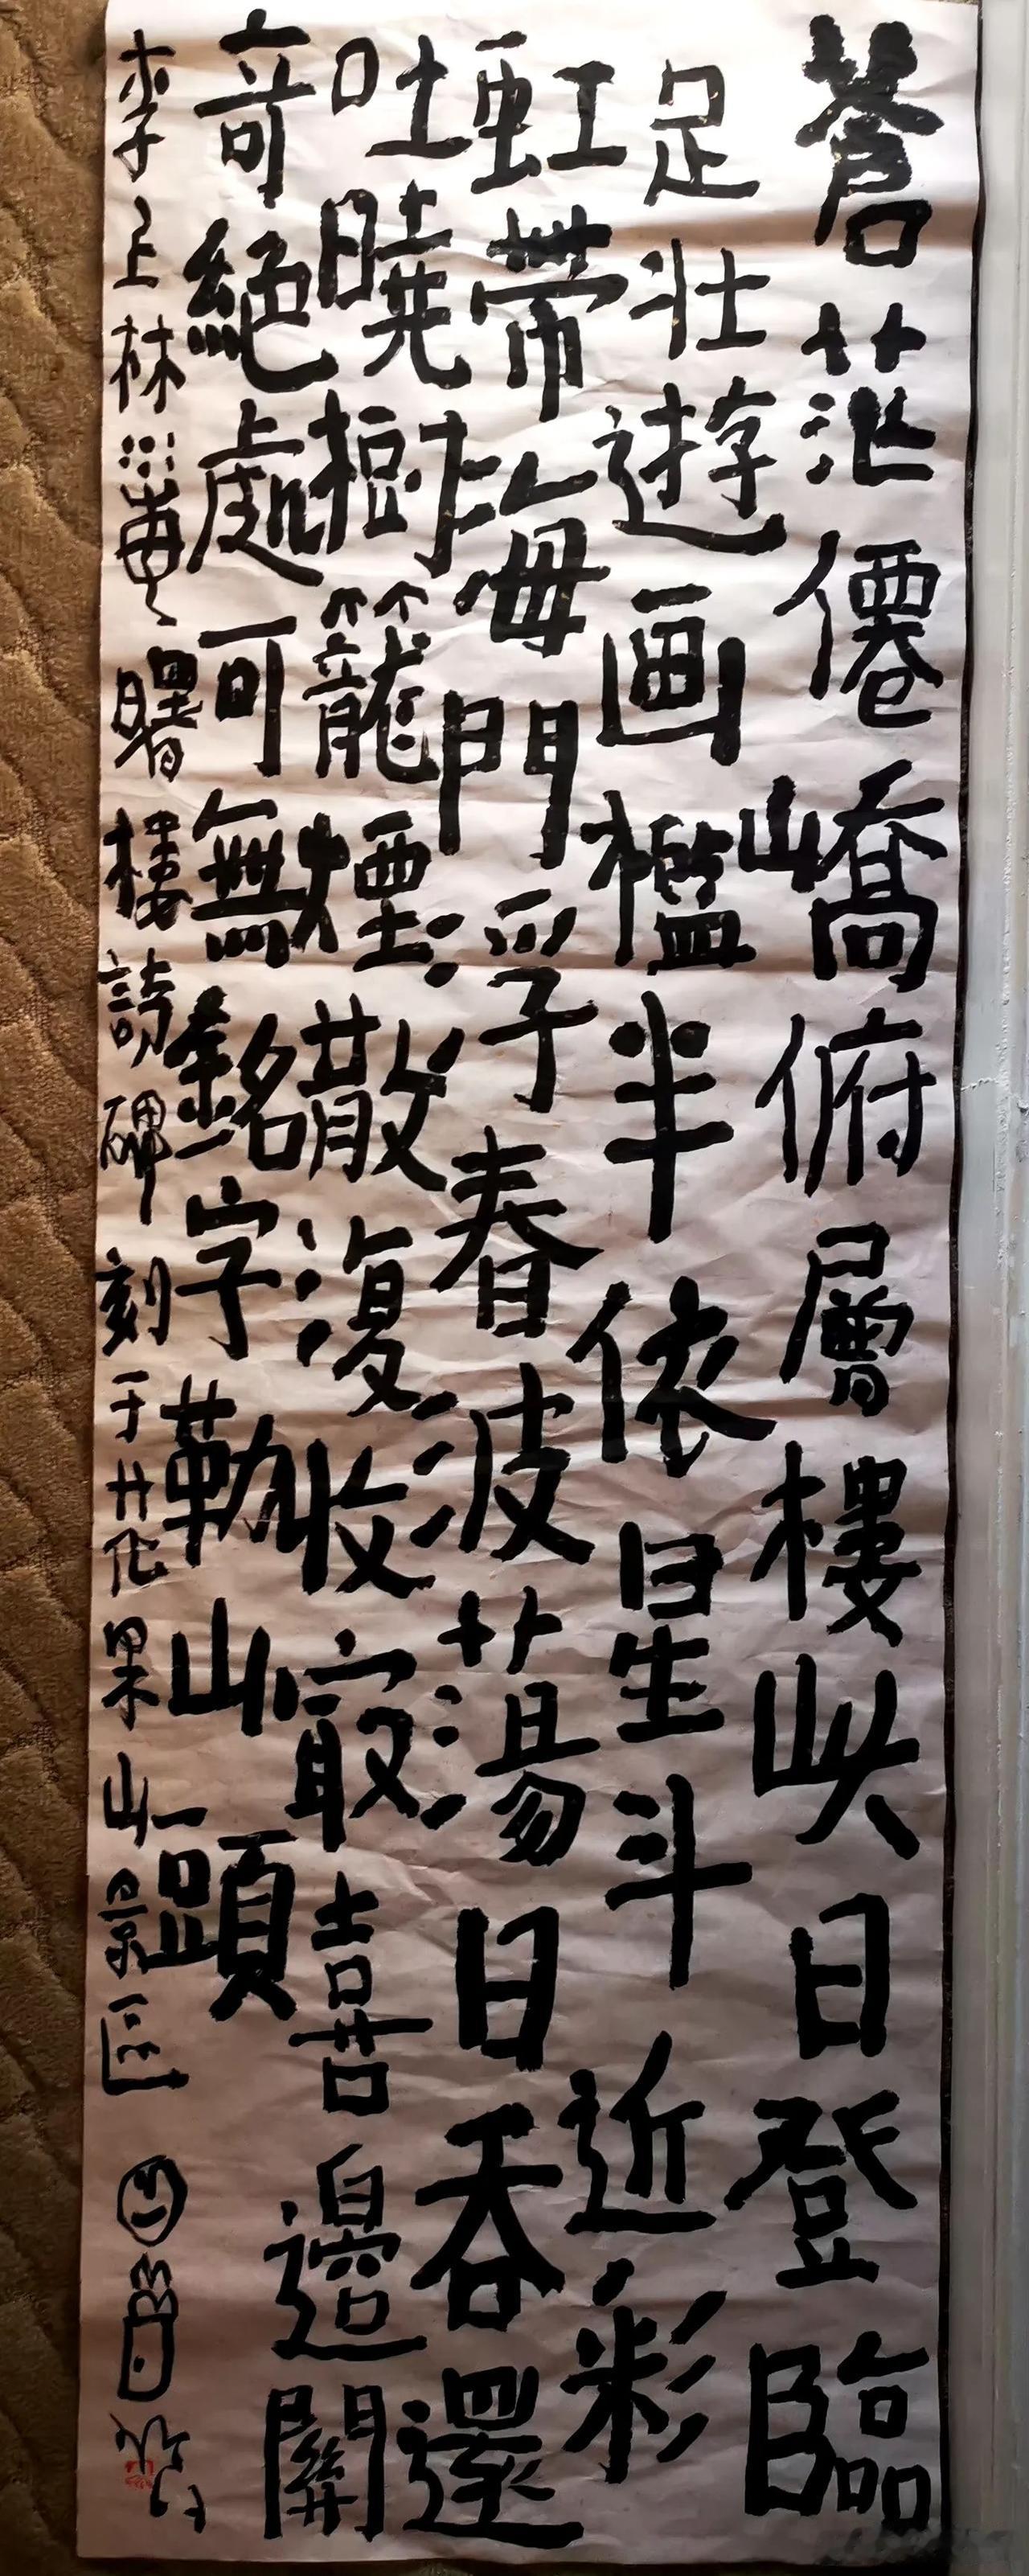 蒼茫僊嶠俯層樓日登臨
足壮遊画檻半依星斗近彩
虹帶海門浮春波蕩日吞還
吐曉樹籠煙散復收冣喜邊關
奇絕處可無銘字勒山頭
李上林海曙樓詩碑刻于花果山景區